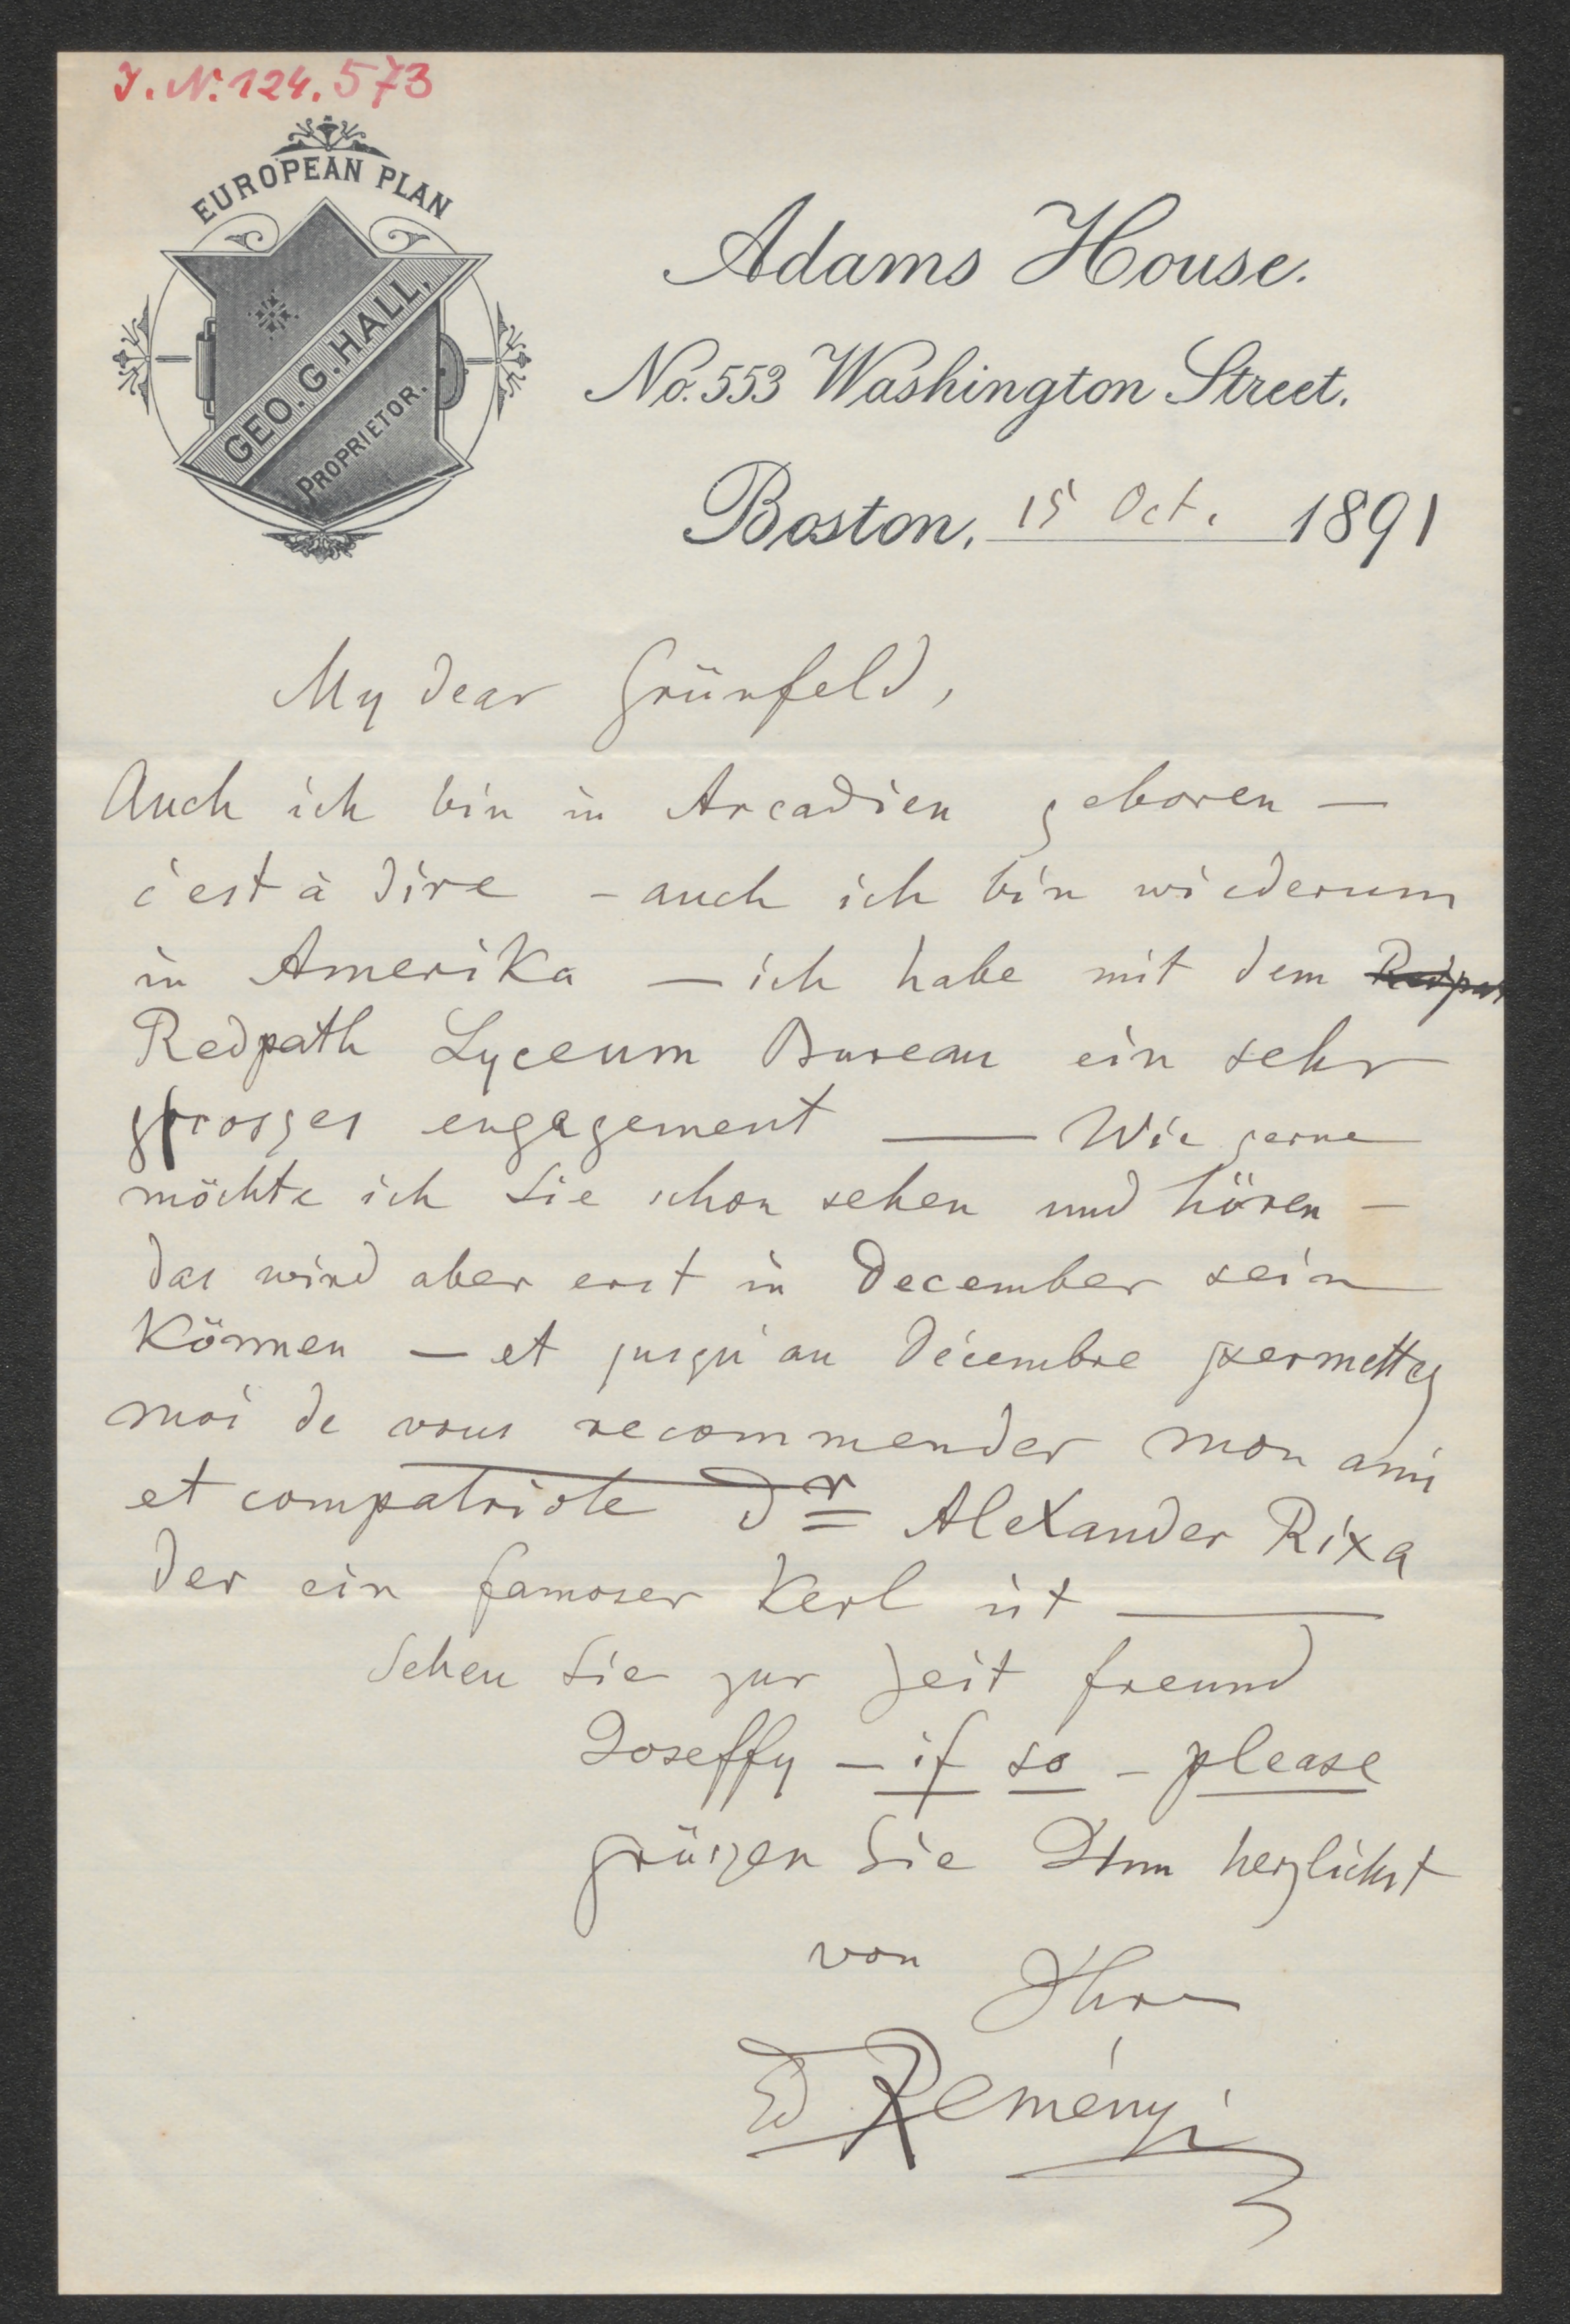 J. N. 124.573
EUROPEAN PLAN
GEO. G. HALL,
PROPRIETOR.
Adams House.
No. 553 Washington Street.
Boston, 15 Oct. 1891
My dear Grünfeld,
Auch ich bin in Arcadien geboren —
c'est à dire – auch ich bin wiederum
in Amerika — ich habe mit dem Redpat
Redpath Lyceum Bureau ein sehr
grosses engagement — Wie gerne
möchte ich Sie schon sehen und hören –
das wird aber erst in December sein
Können — et jusqu'au décembre permettez
moi de vous recommender mon ami
et compatriote Dr Alexander Rixa
der ein famoser Kerl ist —
Sehen Sie zur Zeit freund
Joseffy – if so – please
grüssen Sie Ihm herzlichst
von Ihren
Ed Reményi